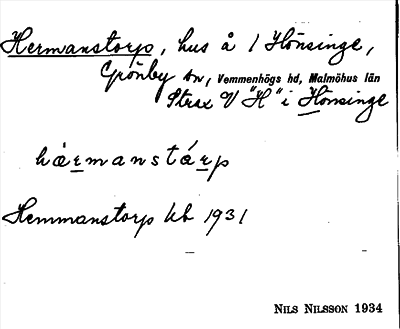 Hermanstorp, hus å 1 Hönsinge,
Grönby sn, Vemmenhögs hd, Malmöhus län
Strax V "H" i Hönsinge
härmanstárp
Hemmanstorp kb 1931
NILS NILSSON 1934